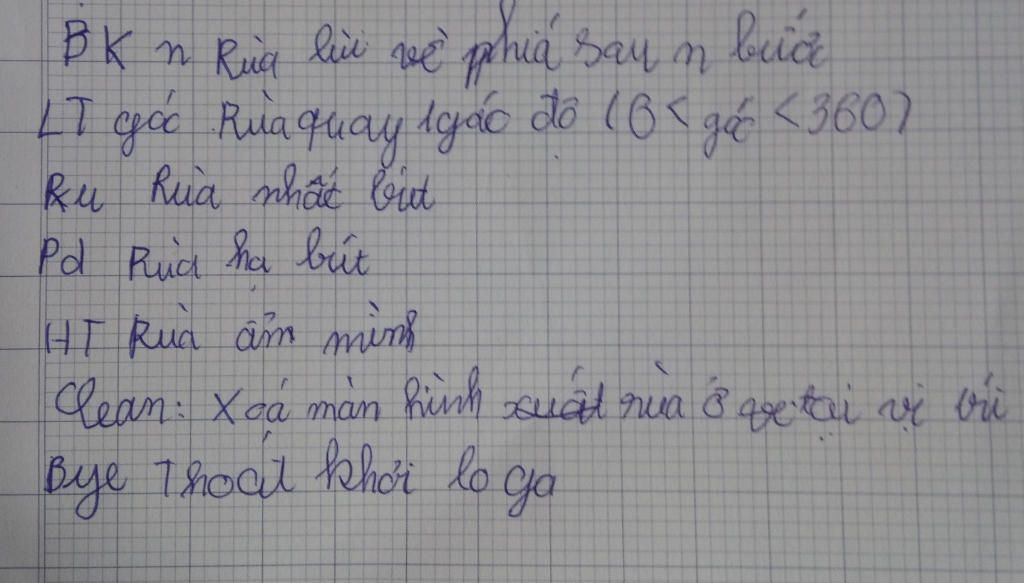 BK n Rùa lùi về phiá sau n bước
LT góc Rùa quay 1 góc độ (0 < góc < 360)
Ru Rùa nhấc bút
Pd Rùa hạ bút
HT Rùa ẩn mình
Clean: Xoá màn hình rùa ở tại vị
Bye Thoát khỏi lo go